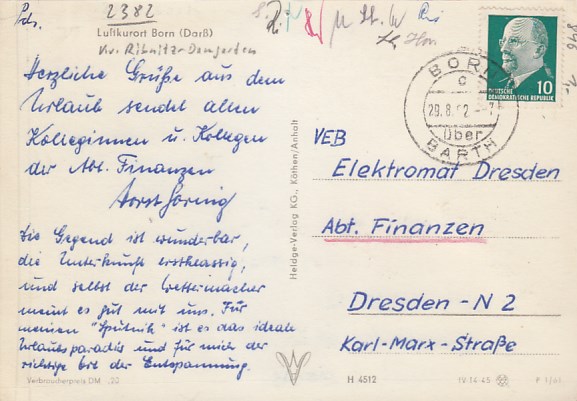 2382
Luftkurort Born (Darß)
Kr. Ribnitz-Damgarten
Herzliche Grüße aus dem
Urlaub sendet allen
Kolleginnen u. Kollegen
der Abt. Finanzen
Horst Hornig
Die Gegend ist wunderbar,
die Unterkunft erstklassig,
und selbst der Wettermacher
meint es gut mit uns. Für
meinen "Sputnik" ist es das ideale
Urlaubsparadis und für mich der
richtige Ort der Entspannung.
Verbraucherpreis DM -.22
Heldge-Verlag KG., Köthen/Anhalt
10
DEUTSCHE
DEMOKRATISCHE REPUBLIK
BORN
c
29.8.62
über
BARTH
VEB
Elektromat Dresden
Abt. Finanzen
Dresden - N 2
Karl-Marx-Straße
H 4512
IV-14-45